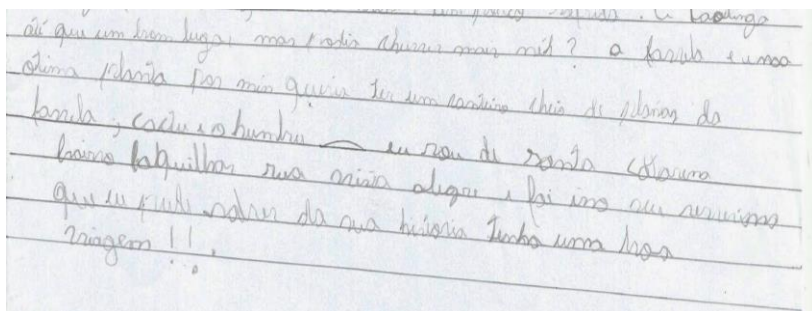 a Caatinga
até que um bom lugar mas podia chuver mais né? a favela e uma
otima planta por min queria ter um canteiro cheio de plantas da
favela, cactu e o humbu eu sou de santa catarina
bairro forquilhas rua maria alegre e foi isso seu
que eu pude saber da sua historia tenha uma boa
viagem!!